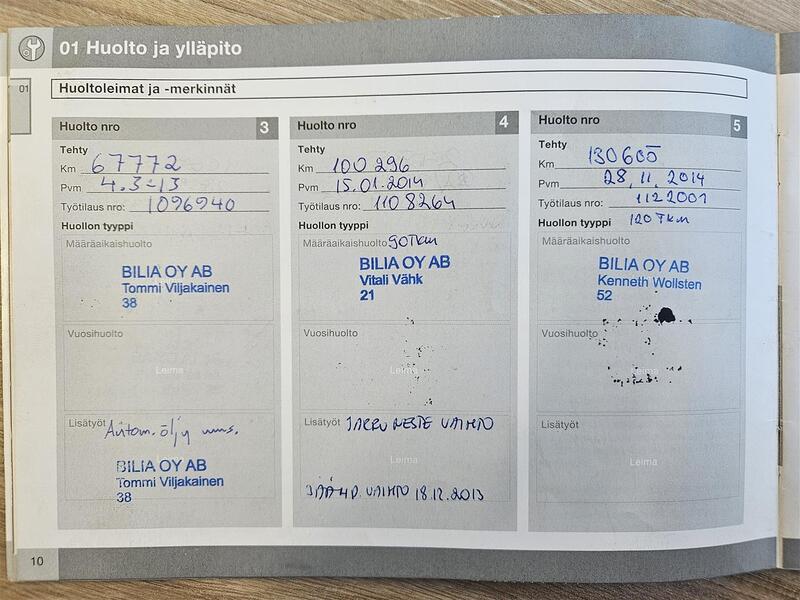 01 Huolto ja ylläpito
01
Huoltoleimat ja -merkinnät
Huolto nro 3
Tehty
Km 67772
Pvm 4.3-13
Työtilaus nro: 1096940
Huollon tyyppi
Määräaikaishuolto
BILIA OY AB
Tommi Viljakainen
38
Vuosihuolto
Leima
Lisätyöt Autom. öljy
BILIA OY AB
Tommi Viljakainen
38
Huolto nro 4
Tehty
Km 100 296
Pvm 15.01.2014
Työtilaus nro: 1108264
Huollon tyyppi
Määräaikaishuolto 90Tkm
BILIA OY AB
Vitali Vähk
21
Vuosihuolto
Leima
Lisätyöt JARRUNESTE VAIHTO
Leima
JÄÄHD. VAIHTO 18.12.2013
Huolto nro 5
Tehty
Km 130605
Pvm 28.11.2014
Työtilaus nro: 1122001
Huollon tyyppi 120Tkm
Määräaikaishuolto
BILIA OY AB
Kenneth Wollsten
52
Vuosihuolto
Leima
Lisätyöt
Leima
10